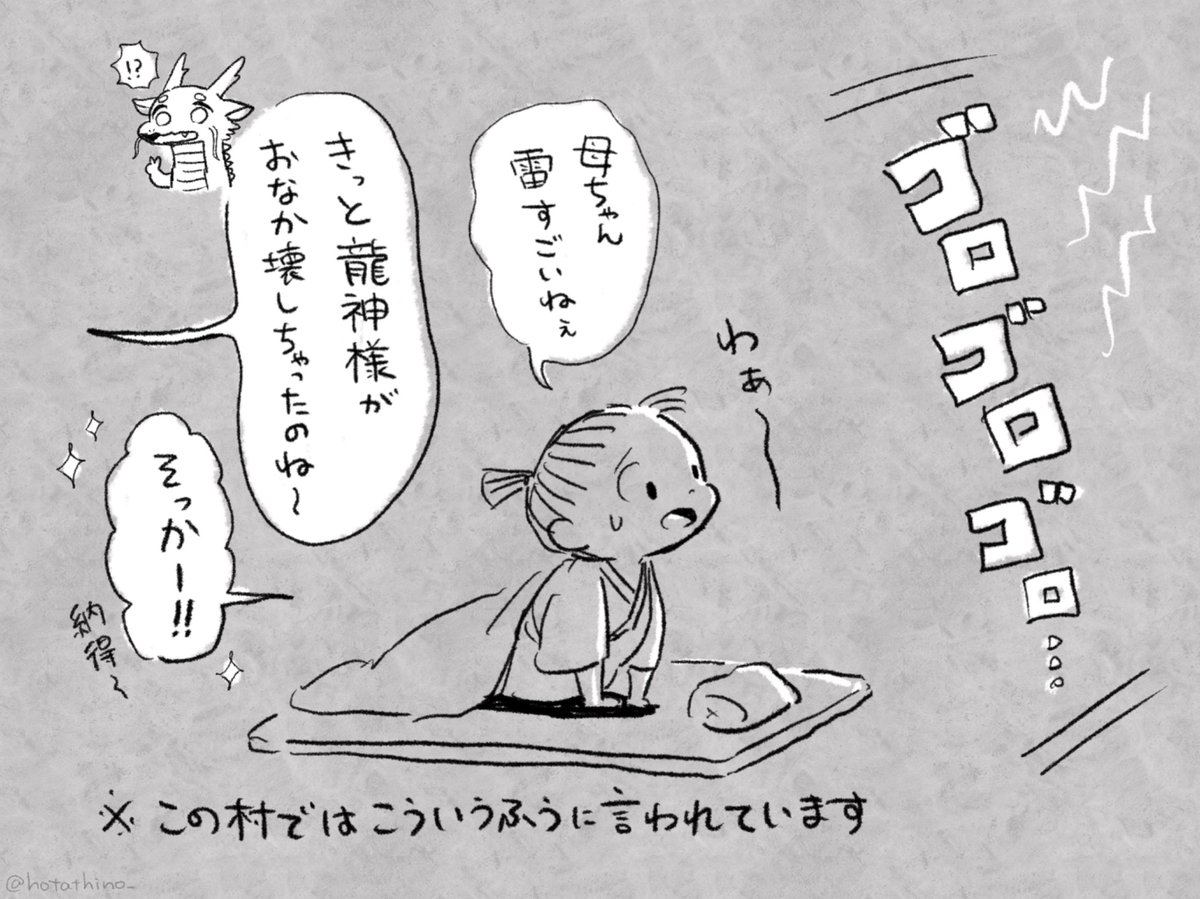 ゴロゴロゴロ…
わぁ〜
母ちゃん
雷すごいねぇ
きっと龍神様が
おなか壊しちゃったのね〜
!?
そっかー!!
納得〜
※この村ではこういうふうに言われています
@hotathino_